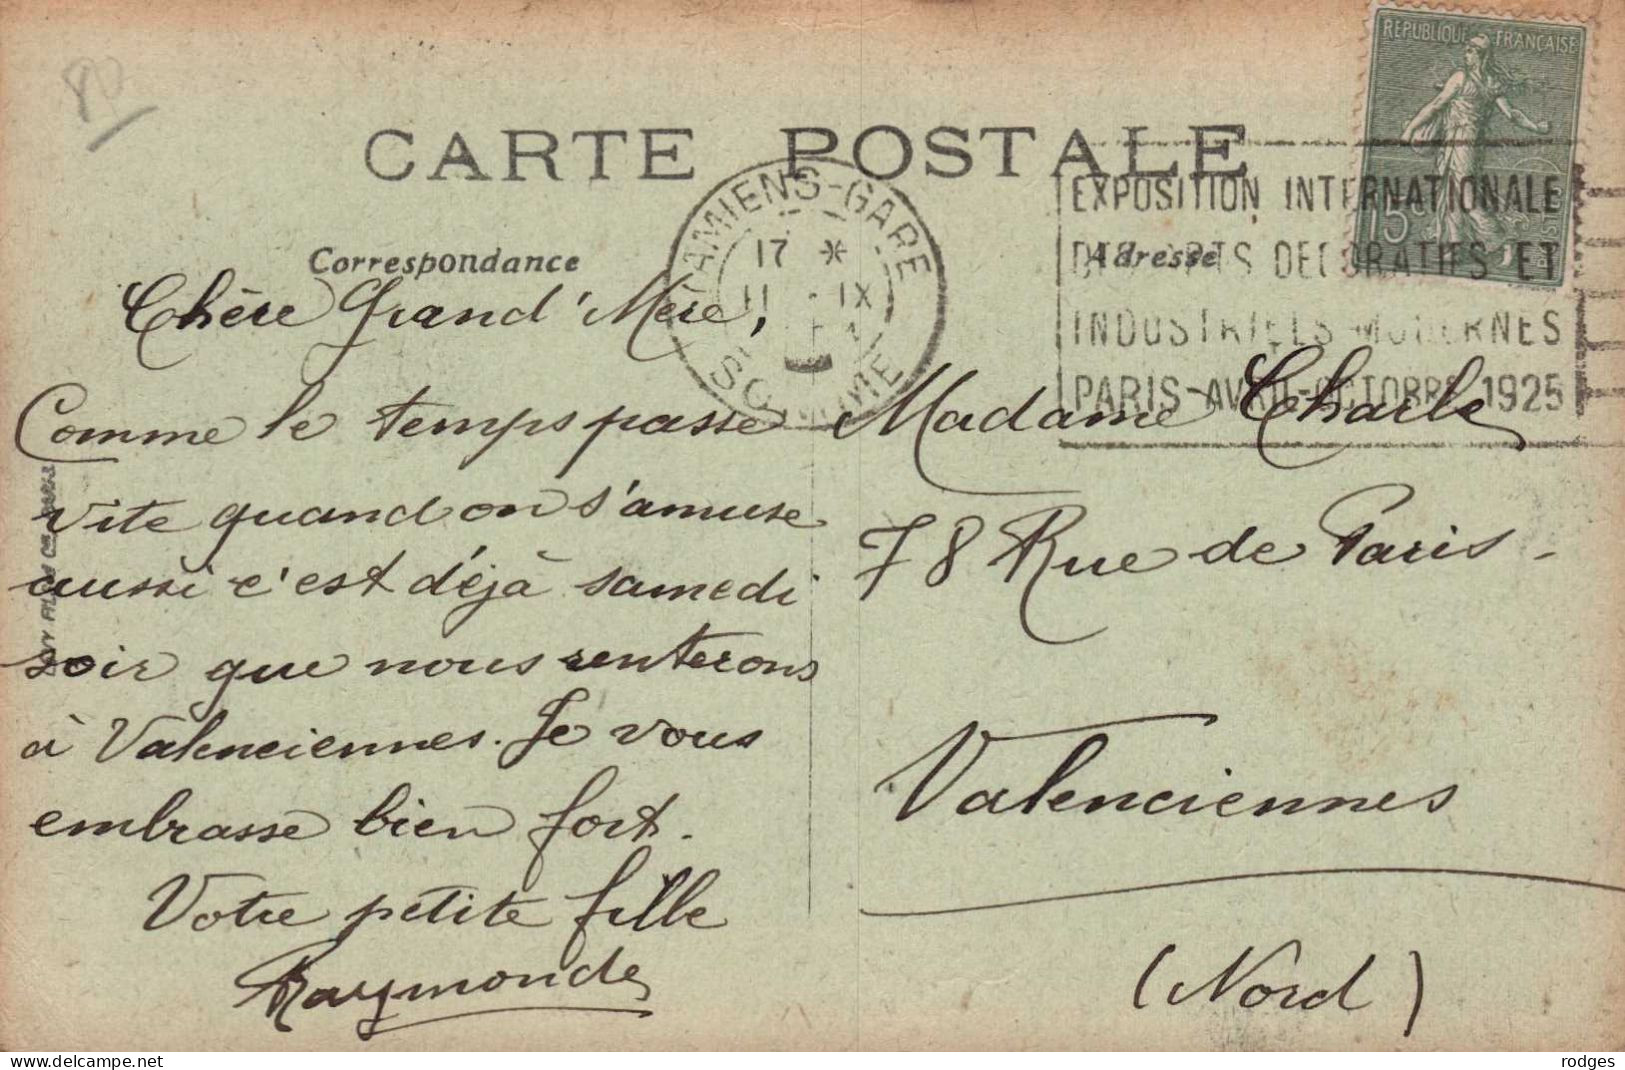 80
CARTE POSTALE
RÉPUBLIQUE FRANÇAISE
15c
AMIENS-GARE
17 *
11 - IX
SOMME
EXPOSITION INTERNATIONALE
DES ARTS DECORATIFS ET
INDUSTRIELS MODERNES
PARIS-AVRIL-OCTOBRE 1925
Correspondance
Adresse
Chère Grand'Mère,
Comme le temps passe
vite quand on s'amuse
aussi c'est déjà samedi
soir que nous renterons
à Valenciennes. Je vous
embrasse bien fort.
Votre petite fille
Raymonde
Madame Charle
78 Rue de Paris -
Valenciennes
(Nord)
rodges